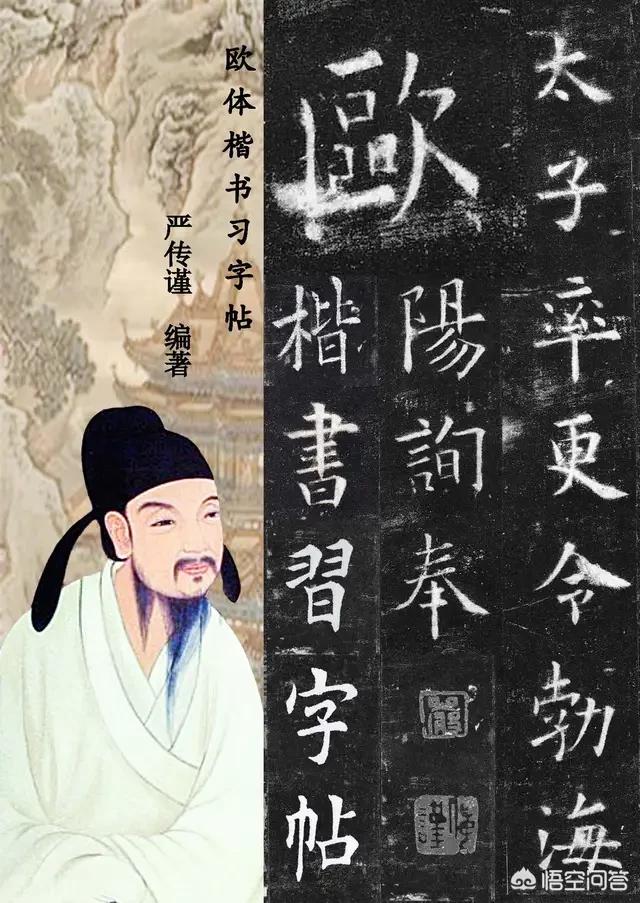 太子率更令勃海
歐陽詢奉
嚴
傳謹
楷書習字帖
欧体楷书习字帖
严传谨 编著
悟空问答